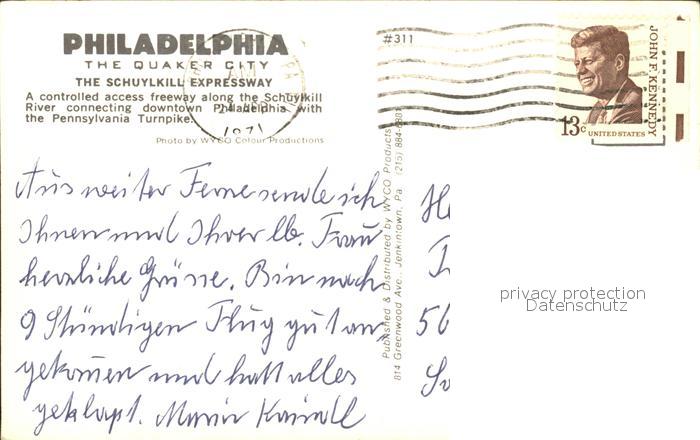 PHILADELPHIA
THE QUAKER CITY
THE SCHUYLKILL EXPRESSWAY
A controlled access freeway along the Schuylkill
River connecting downtown Philadelphia with
the Pennsylvania Turnpike.
Photo by WYCO Colour Productions
AM
1971
#311
JOHN F. KENNEDY
13c UNITED STATES
Aus weiter Ferne sende ich
Ihnen und Ihrer lb. Frau
herzliche Grüsse. Bin nach
9 Stündigen Flug gut an
gekommen und hatt alles
geklapt. Maria
Published & Distributed by WYCO Products
814 Greenwood Ave., Jenkintown, Pa. (215) 884-
56
privacy protection
Datenschutz